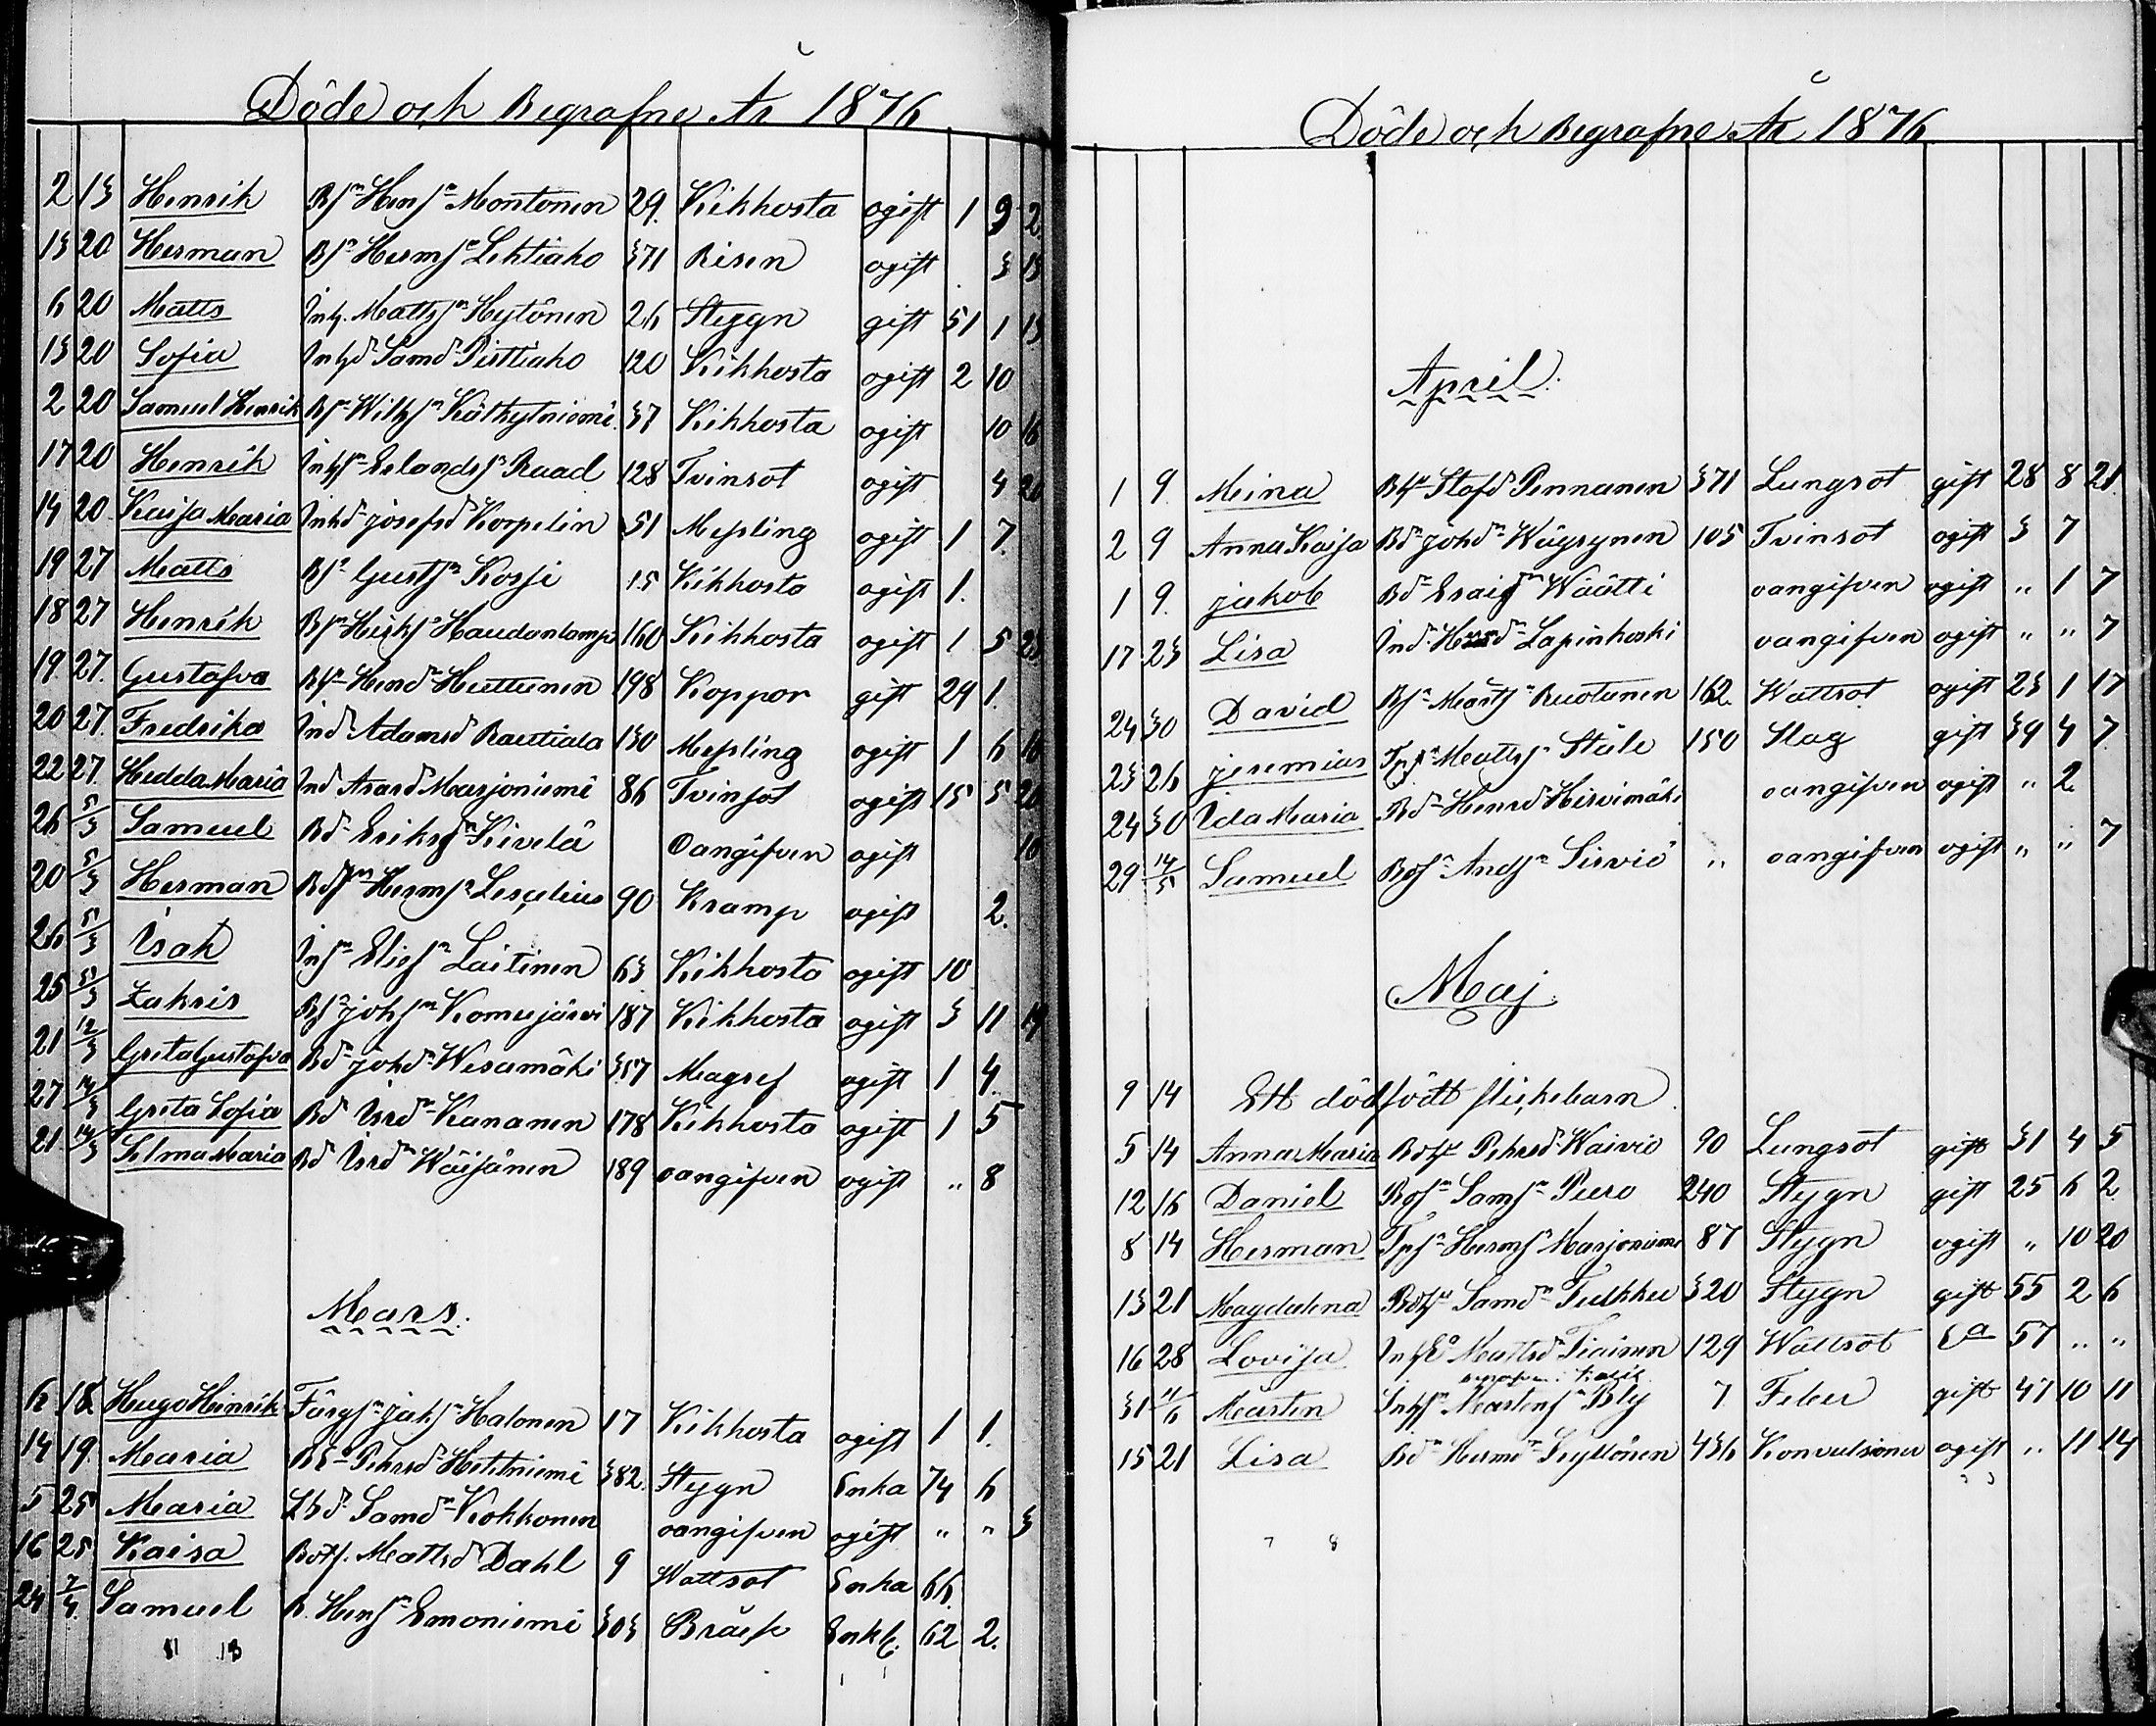 Döde och Begrafne År 1876
2 13 Henrik Bsn Hensn Montonen 29. Kikhosta ogift 1 9 2.
13 20 Herman Bsn Hermsn Lehtiaho 371 Risen ogift 3 13
6 20 Matts Inh. Mattssn Hytönen 26 Styggn gift 51 1 13
13 20 Sofia Inhd Samd Pisttiaho 120 Kikhosta ogift 2 10
2 20 Samuel Henrik Bsn Wilhsn Kätkytniemi 37 Kikhosta ogift 10 16
17 20 Henrik Inhsn Erlandssn Ruad 128 Tvinsot ogift 4 20
14 20 Kaisa Maria Inhd Josefsd Korpelin 51 Messling ogift 1 7.
19 27 Matts Bsn Gustsn Kossi 15 Kikhosta ogift 1.
18 27 Henrik Bsn Heiksn Haudanlamp 160 Kikhosta ogift 1 5 23
19. 27. Gustafva Bhu Hend Huttunen 198 Koppor gift 29 1.
20 27. Fredrika Ind Adamsd Rautiala 130 Messling ogift 1 6 16
22 27. Hedda Maria Ind Asarsd Marjoniemi 86 Tvinsot ogift 15 5 20
26 5/3 Samuel Bd Erikss Kivelä Oangifven ogift 10
20 5/3 Herman Bdsn Hermsn Lesçelius 90 Kramp ogift 2.
26 5/3 Isak Insn Eliesn Laitinen 63 Kikhosta ogift 10
25 5/3 Zakris Bsn Johsn Komujärvi 187 Kikhosta ogift 3 11 14
21 12/3 Greta Gustafva Bd Johd Wesamäki 357 Magref ogift 1 4.
27 14/3 Greta Sofia Bd Isrd Kananen 178 Kikhosta ogift 1 5
21 14/3 Selma Maria Bd Isrd Wäisänen 189 oangifven ogift " 8
Mars.
6 18. Hugo Henrik Färgsn Jaksn Halonen 17 Kikhosta ogift 1 1.
14 19. Maria BEa Pehrsd Hietniemi 382. Styggn Enka 74 6
5 25 Maria Lhd Samd Kokkonen oangifven ogift " " 3
16 25 Kaisa Mattsd Dahl 9 Wattsot Enka 66.
24 7/4. Samuel B. Hensn Emoniemi 303 Bråck Enkl. 62 2.
Döde och Begrafne År 1876
April.
1 9. Meina Bhu Stafd Pennanen 371 Lungsot gift 28 8 21
2 9 Anna Kaisa Bd Johd Wäyrynen 105 Tvinsot ogift 3 7
1 9. Jakob Bd Esaies Wäätti oangifven ogift " 1 7
17 23 Lisa Ind Lapinkoski oangifven ogift " " 7
24 30 David Bsn Mårtsn Ruotanen 162. Wattsot ogift 23 1 17
23 26 Jeremias Tpsn Mattssn Ståle 150 Slag gift 39 4 7
24 30 Ida Maria Bd Henrsd Hirvimäki oangifven ogift " 2.
29 14/5 Samuel Bdsn Andsn Sirviö " oangifven ogift " " 7
Maj
9 14 Ett dödfödt flickebarn
5 14 Anna Maria Pehrsd Waivio 90 Lungsot gift 31 4 5
12 16 Daniel Bdsn Samsn Puro 240 Styggn gift 25 6 2
8 14 Herman Tpsn Hermsn Marjoniemi 87 Styggn ogift " 10 20
13 21 Magdalena Samd Tuikku 320 Styggn gift 55 2 6
16 28 Lovisa InhEa Mattsd Tiainen 129 Wattsot Ea 57 " "
31 11/6 Mårten Inhsn Mårtensn Bly 7 Feber gift 47 10 11
15 21 Lisa Bd Hermd Kyllönen 436 Konvulsioner ogift " 11 14